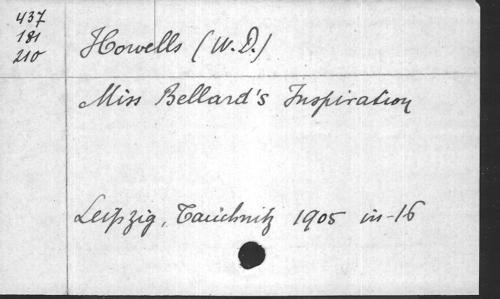 437
181
210
Howells (W.D.)
Miss Bellard's Inspiration
Leipzig, Tauchnitz 1905 in-16